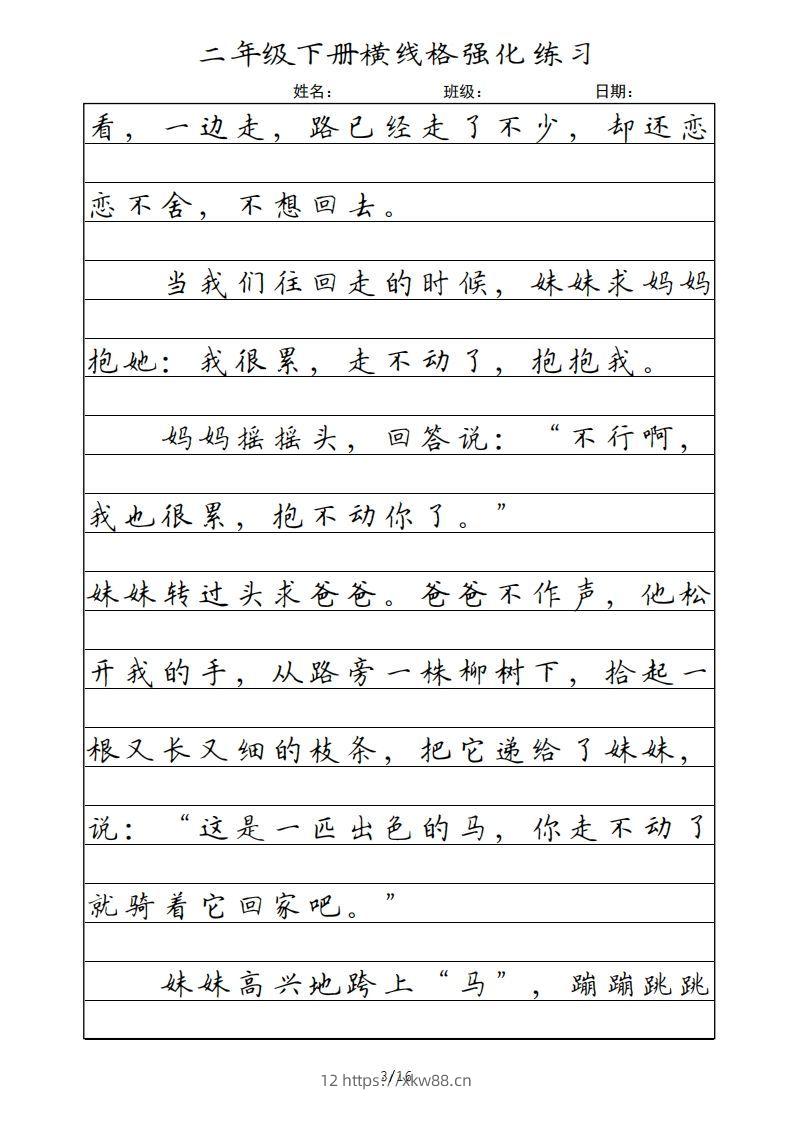 二年级下册横线格强化练习
姓名： 班级： 日期：
看，一边走，路已经走了不少，却还恋
恋不舍，不想回去。
当我们往回走的时候，妹妹求妈妈
抱她：我很累，走不动了，抱抱我。
妈妈摇摇头，回答说：“不行啊，
我也很累，抱不动你了。”
妹妹转过头求爸爸。爸爸不作声，他松
开我的手，从路旁一株柳树下，拾起一
根又长又细的枝条，把它递给了妹妹，
说：“这是一匹出色的马，你走不动了
就骑着它回家吧。”
妹妹高兴地跨上“马”，蹦蹦跳跳
3/16
12 https://xkw88.cn